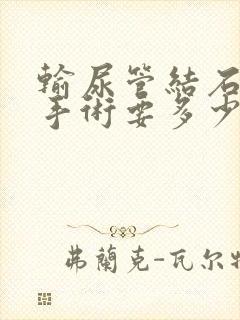 輸尿管結石
手術要多少
弗蘭克-瓦尔特